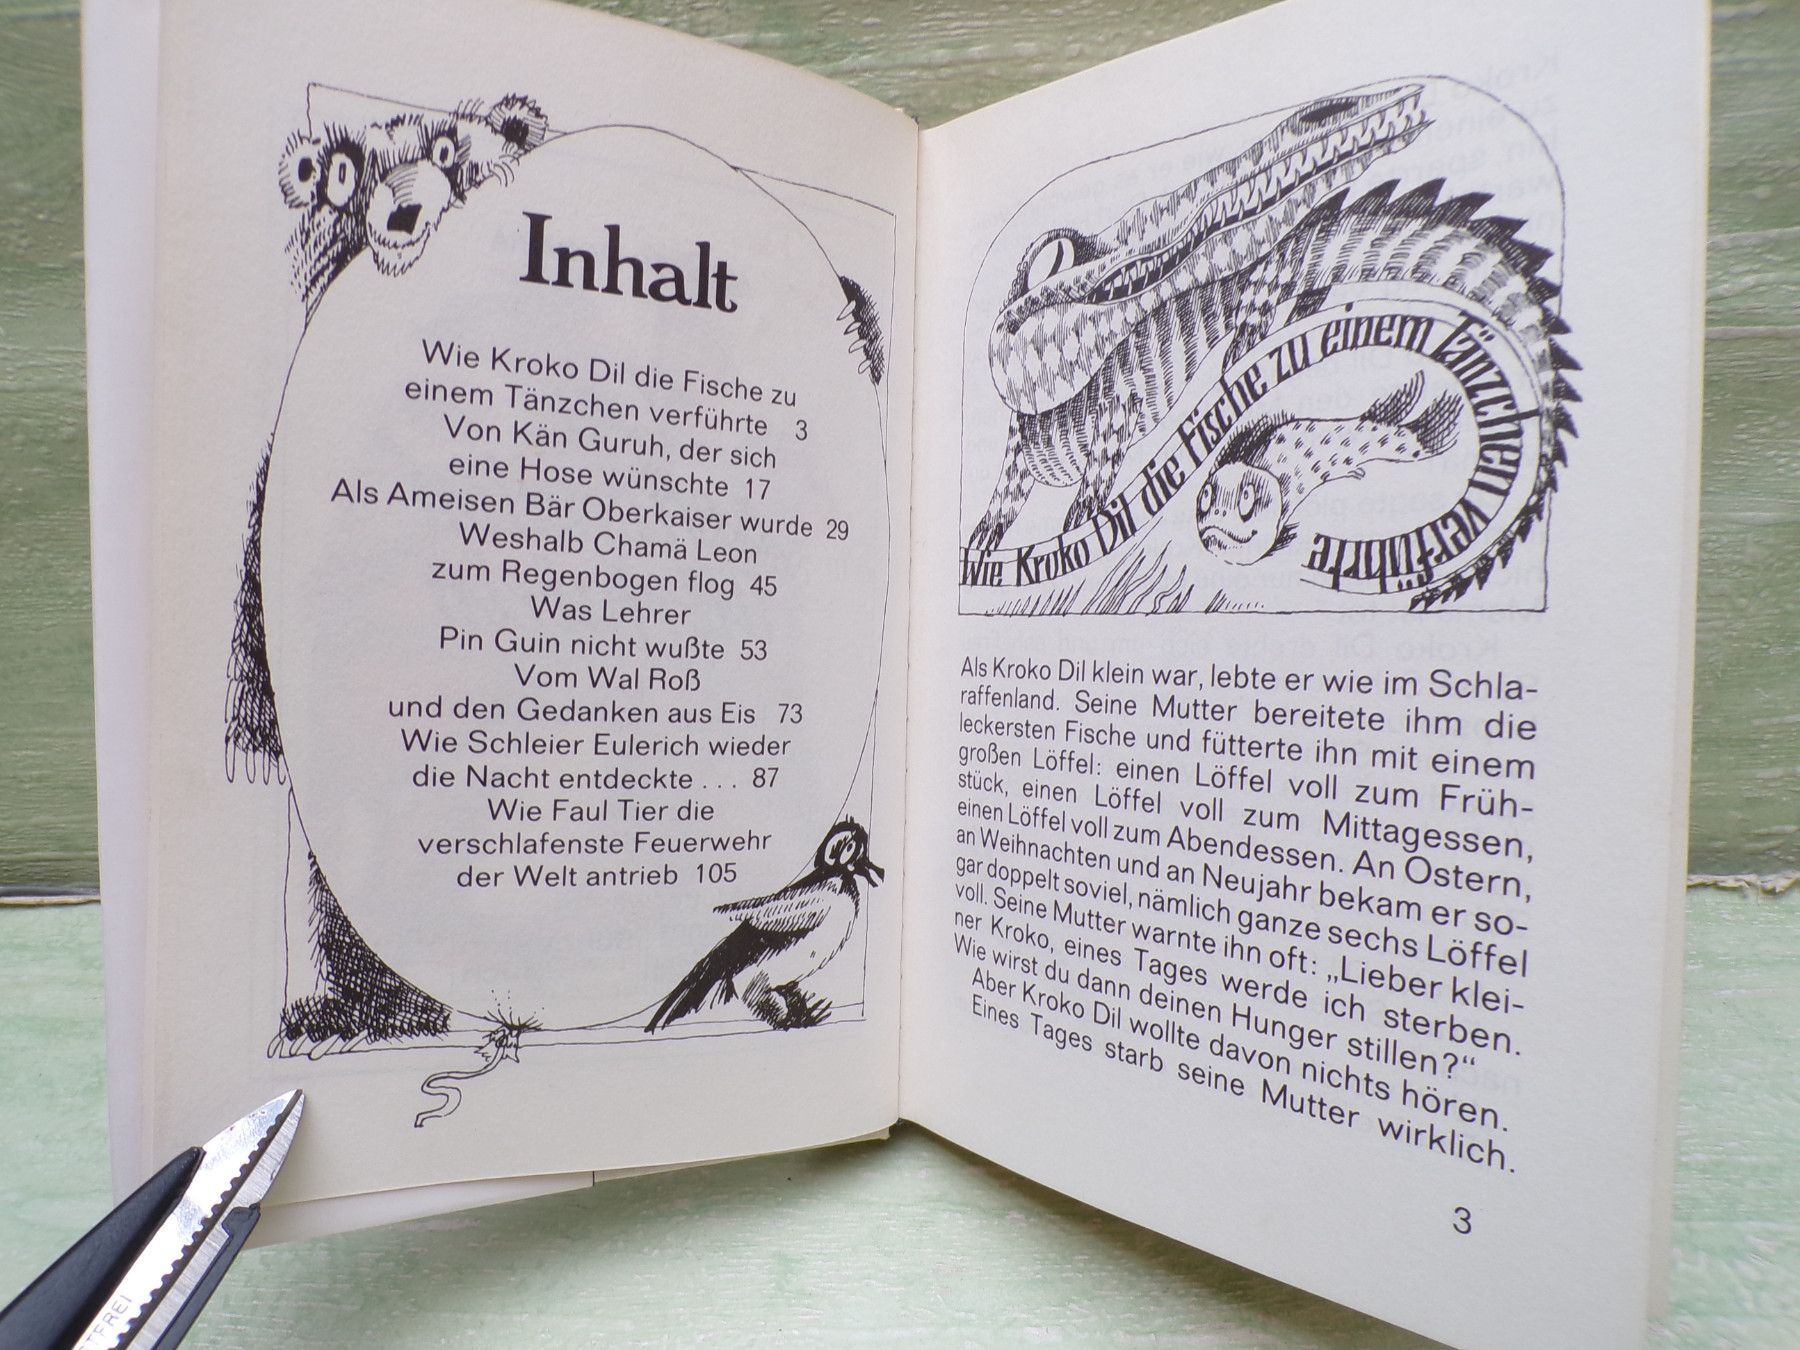 Inhalt
Wie Kroko Dil die Fische zu
einem Tänzchen verführte 3
Von Kän Guruh, der sich
eine Hose wünschte 17
Als Ameisen Bär Oberkaiser wurde 29
Weshalb Chamä Leon
zum Regenbogen flog 45
Was Lehrer
Pin Guin nicht wußte 53
Vom Wal Roß
und den Gedanken aus Eis 73
Wie Schleier Eulerich wieder
die Nacht entdeckte ... 87
Wie Faul Tier die
verschlafenste Feuerwehr
der Welt antrieb 105
Wie Kroko Dil die Fische zu einem Tänzchen verführte
Als Kroko Dil klein war, lebte er wie im Schla-
raffenland. Seine Mutter bereitete ihm die
leckersten Fische und fütterte ihn mit einem
großen Löffel: einen Löffel voll zum Früh-
stück, einen Löffel voll zum Mittagessen,
einen Löffel voll zum Abendessen. An Ostern,
an Weihnachten und an Neujahr bekam er so-
gar doppelt soviel, nämlich ganze sechs Löffel
voll. Seine Mutter warnte ihn oft: „Lieber klei-
ner Kroko, eines Tages werde ich sterben.
Wie wirst du dann deinen Hunger stillen?“
Aber Kroko Dil wollte davon nichts hören.
Eines Tages starb seine Mutter wirklich.
3
TFREI